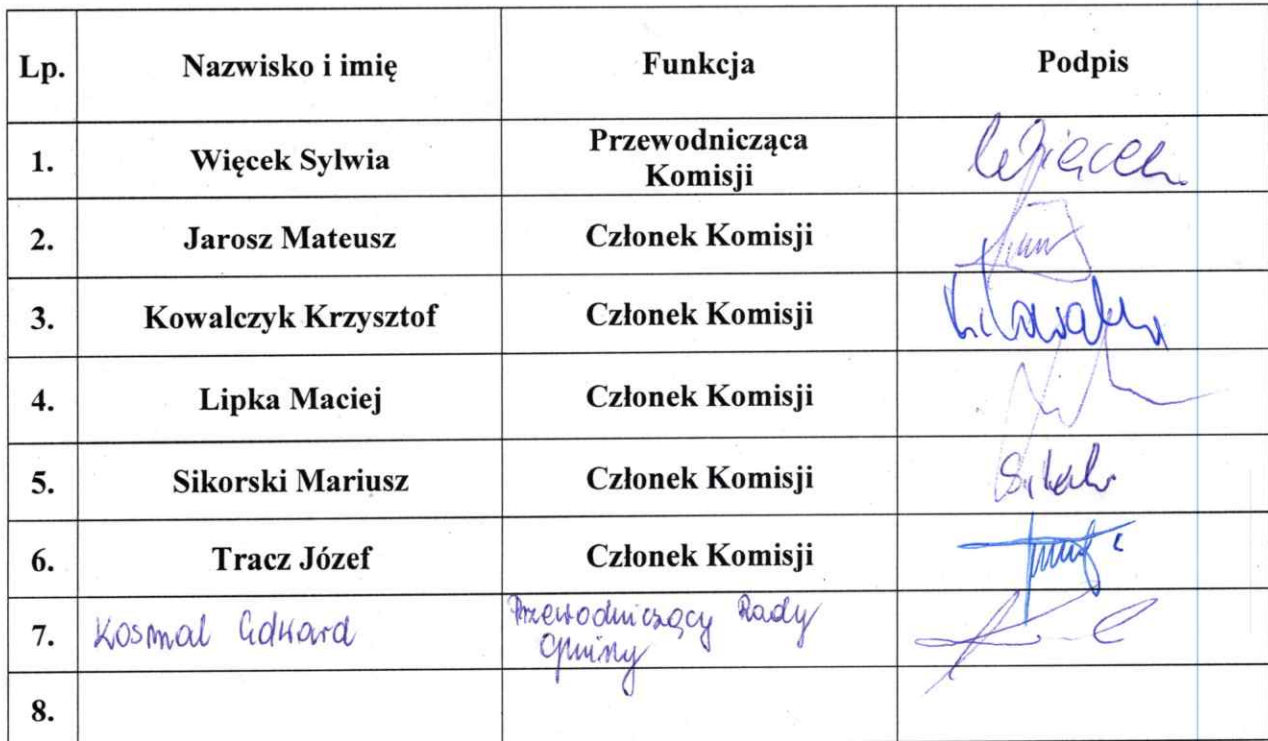 Lp. Nazwisko i imię Funkcja Podpis
1. Więcek Sylwia Przewodnicząca
Komisji Więcek
2. Jarosz Mateusz Członek Komisji
3. Kowalczyk Krzysztof Członek Komisji
4. Lipka Maciej Członek Komisji
5. Sikorski Mariusz Członek Komisji
6. Tracz Józef Członek Komisji
7. Kosmal Edward Przewodniczący Rady
Gminy
8.